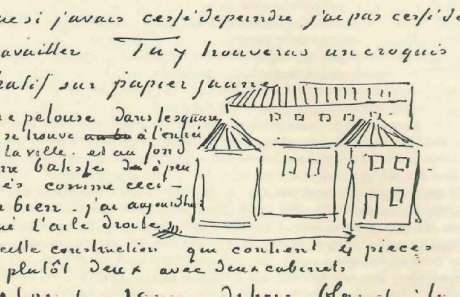 que si j'avais cessé de peindre j'ai pas cessé de
travailler Tu y trouveras un croquis
hatif sur papier jaune
ne pelouse dans le square
se trouve à l'entrée
la ville. et au fond
une batisse à peu
comme ceci —
bien – j'ai aujourd'hui
l'aile droite
cette construction qui contient 4 pièces
plutôt deux avec deux cabinets